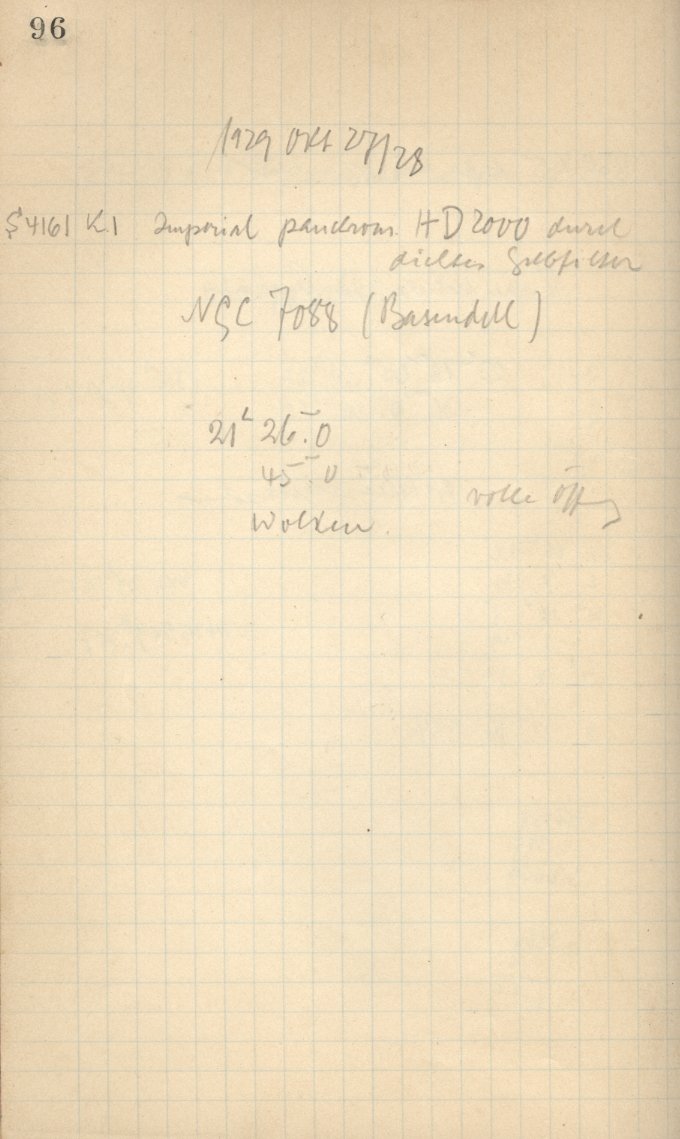 96
1929 Okt 27/28
S4161 K.1 Imperial panchrom. HD 2000 durch
dichtes Gelbfilter
NGC 7088 (Baxendell)
21h 26m.0
45m.0
volle Öffng
Wolken.